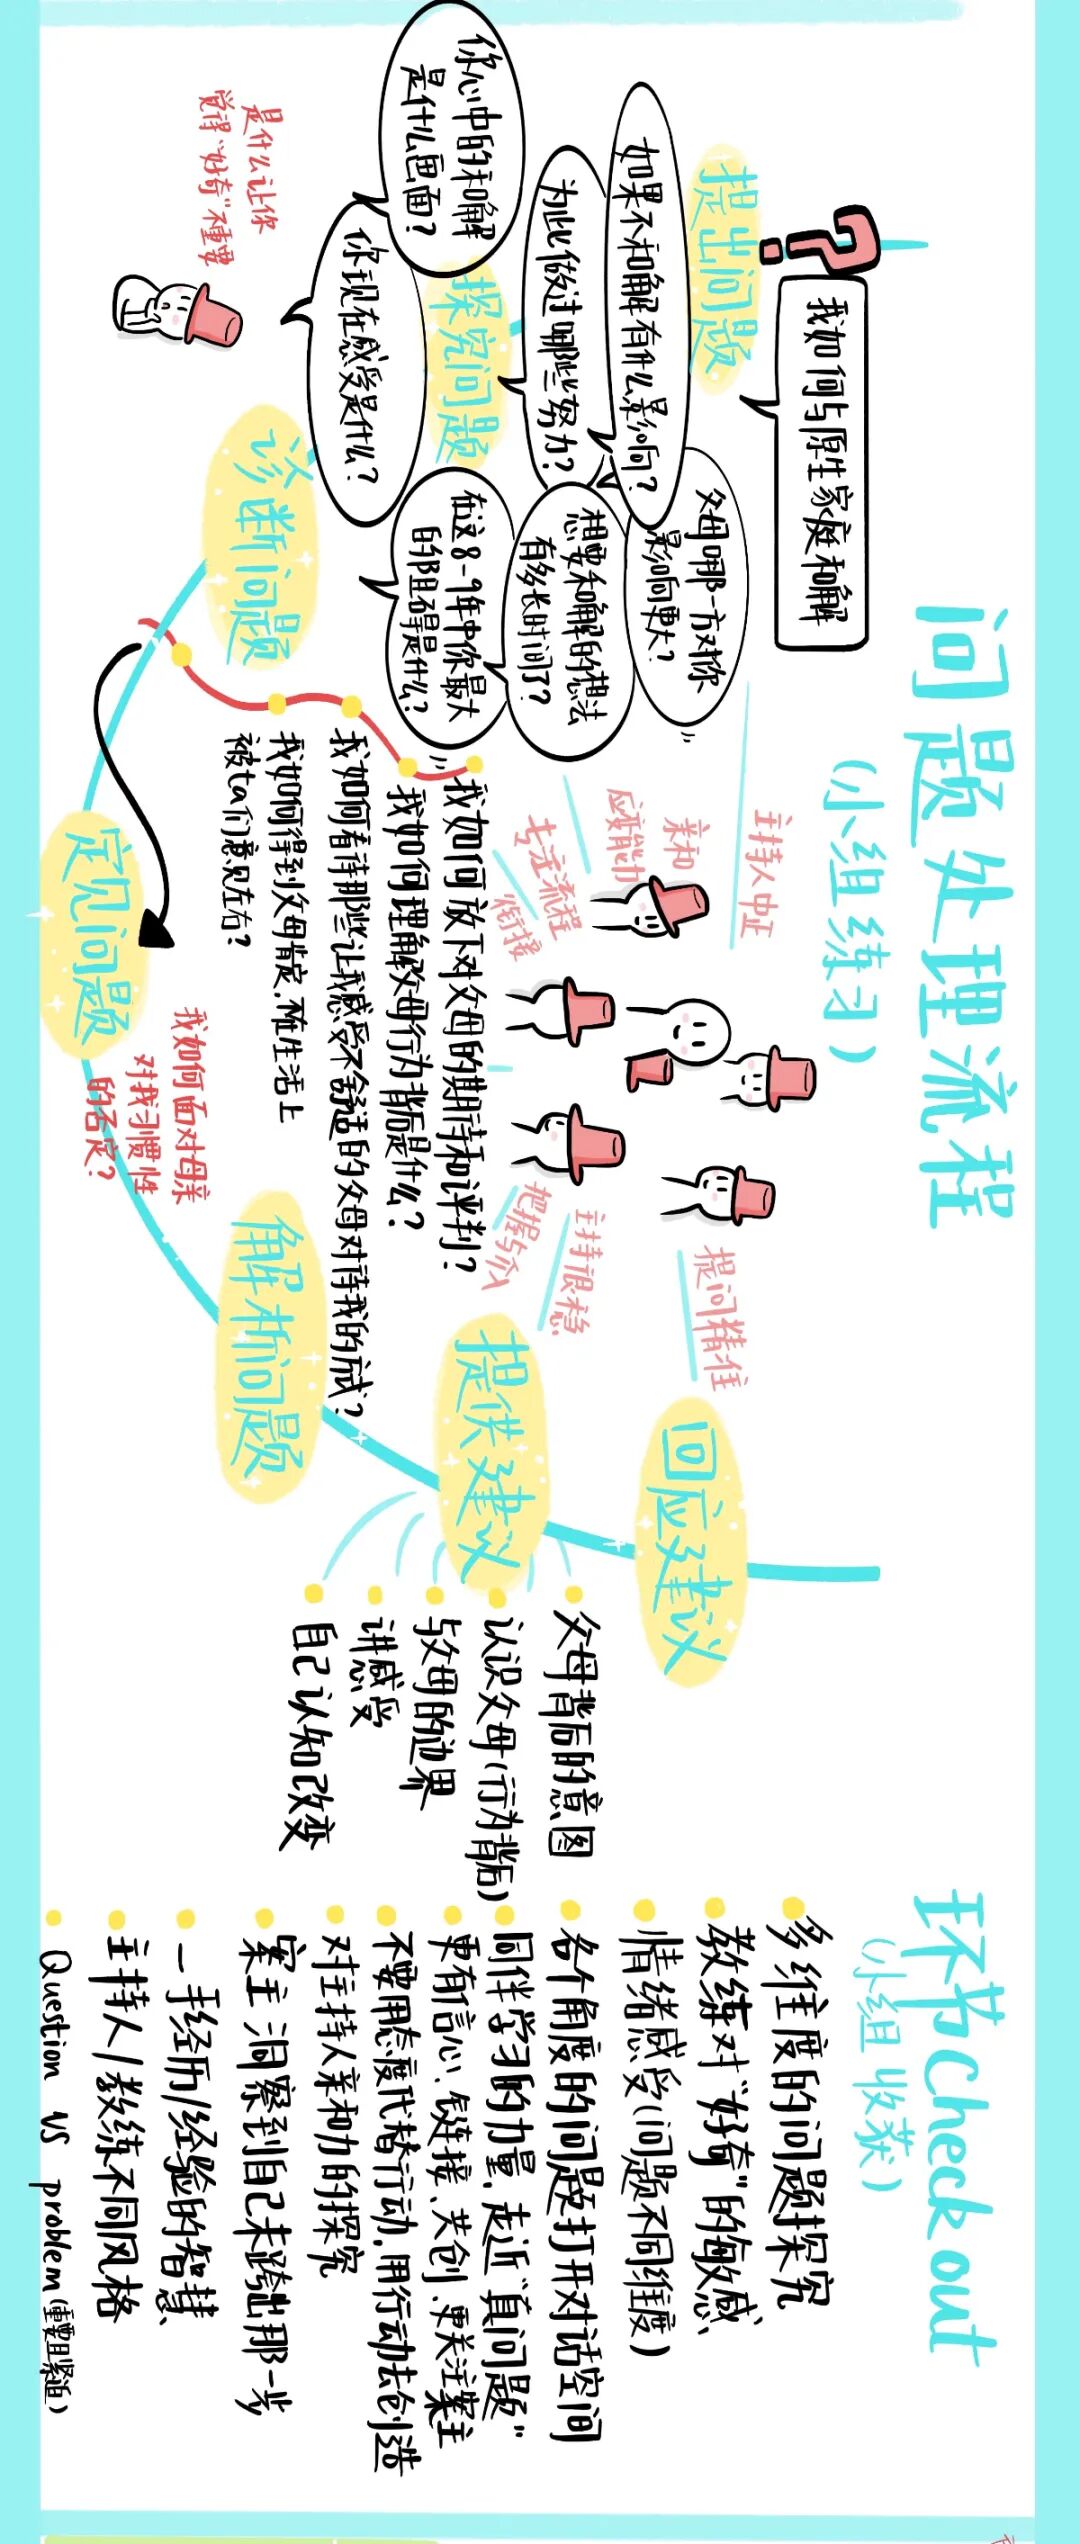 问题处理流程
(小组练习)
提出问题
我如何与原生家庭和解
父母哪一方对你
影响更大?
如果不和解有什么影响?
想要和解的想法
有多长时间了?
为此做过哪些努力?
探究问题
在这8-9年中你最大
的绊阻碍是什么?
你心中的和解
是什么画面?
你现在感受是什么?
是什么让你
觉得“好奇”不重要
诊断问题
主持人中正
亲和
应变能力
专注流程
衔接
提问精准
主持很稳
把握与分
我如何放下对父母的期待和评判?
我如何理解父母行为背后是什么?
我如何看待那些让我感受不舒适的父母对待我的方式?
我如何得到父母肯定,不在生活上
被ta们意见左右?
定见问题
我如何面对母亲
对我习惯性
的否定?
解析问题
提供建议
回应建议
父母背后的意图
认识父母(行为背后)
与父母的边界
讲感受
自己认知改变
环节Check out
(小组收获)
多维度的问题探究
教练对“好奇”的敏感
情绪感受(问题不同维度)
各个角度的问题打开对话空间
同伴学习的力量,走近“真问题”
更有信心、链接、共创、更关注案主
不要用态度代替行动,用行动去创造
对主持人亲和力的探究
案主洞察到自己未跨出那一步
一手经历/经验的智慧
主持人/教练不同风格
Question vs problem(重要且紧迫)